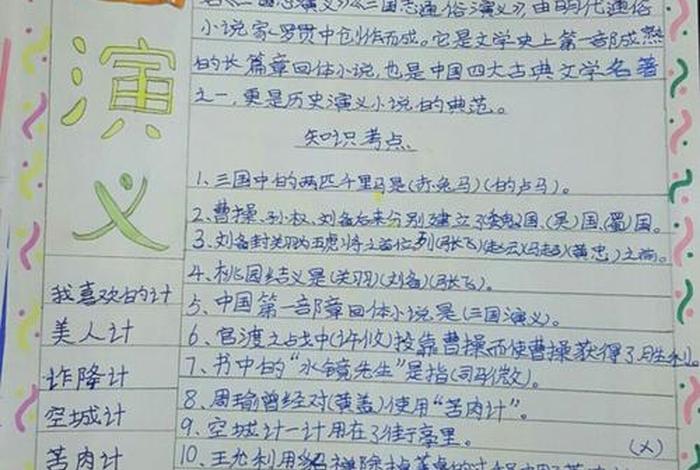 演
义
我喜欢的计
美人计
诈降计
空城计
苦肉计
志通俗演义》，由明代通俗
小说家罗贯中创作而成。它是文学史上第一部成熟
的长篇章回体小说，也是中国四大古典文学名著
之一，更是历史演义小说的典范。
知识考点
1、三国中的两匹千里马是(赤兔马)(的卢马)。
2、曹操、孙权、刘备后来分别建立了魏国、(吴)国、(蜀)国。
3、刘备封关羽为五虎将之首位列(张飞)(赵云)(马超)(黄忠)之前。
4、桃园结义是(关羽)(刘备)(张飞)。
5、中国第一部章回体小说是(三国演义)。
6、官渡之战中(许攸)投靠曹操而使曹操获得了胜利。
7、书中的"水镜先生"是指(司马徽)。
8、周瑜曾经对(黄盖)使用"苦肉计"。
9、空城计一计用在了街亭里。 (×)
10、王允利用貂禅除掉董卓